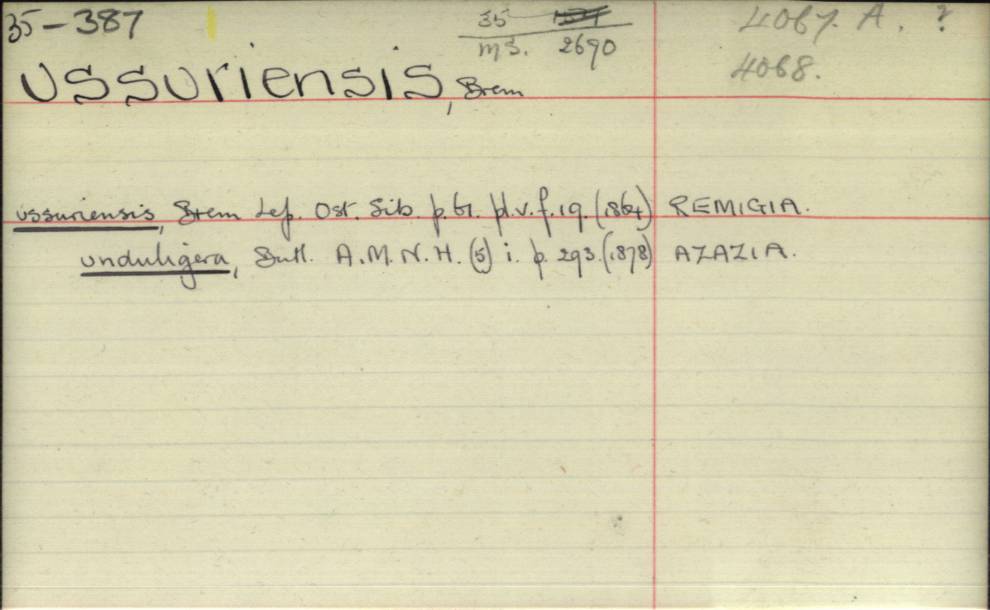 35-387
35
MS. 2690
4067. A. ?
4068.
USSURIENSIS, Brem
ussuriensis, Brem Lep. Ost. Sib. p. 61. pl. v. f. 19. (1864) REMIGIA.
unduligera, Butl. A.M.N.H. (5) i. p. 293. (1878) AZAZIA.